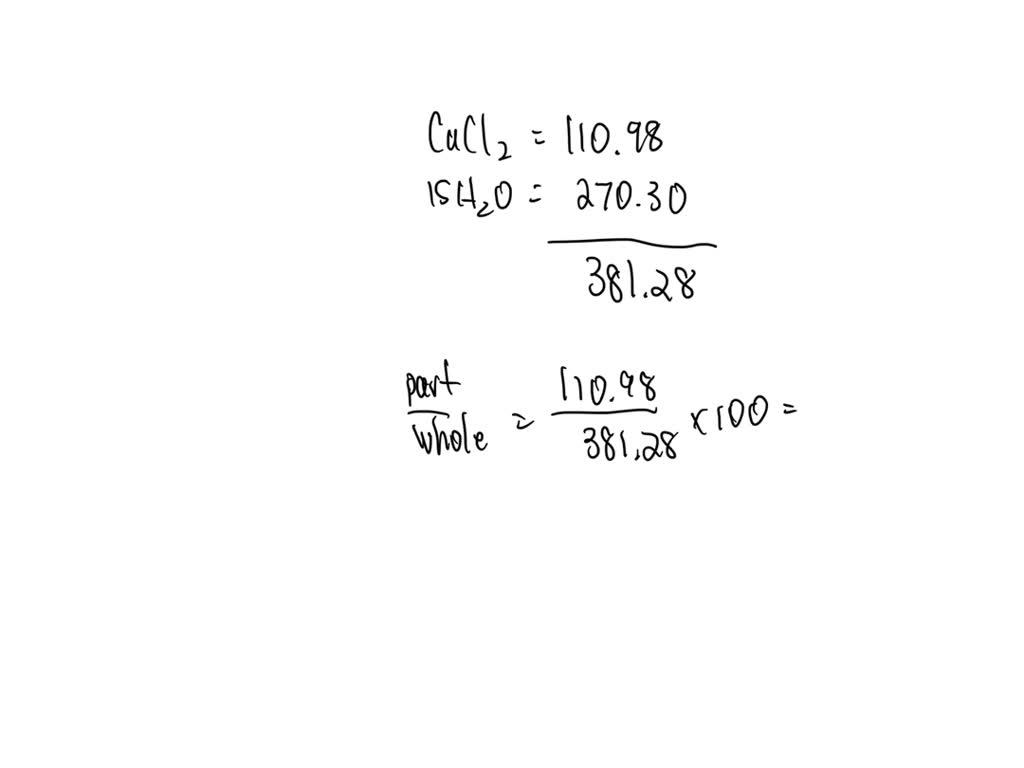 CaCl2 = 110.98
15H2O = 270.30
381.28
part/whole = 110.98/381.28 x100 =